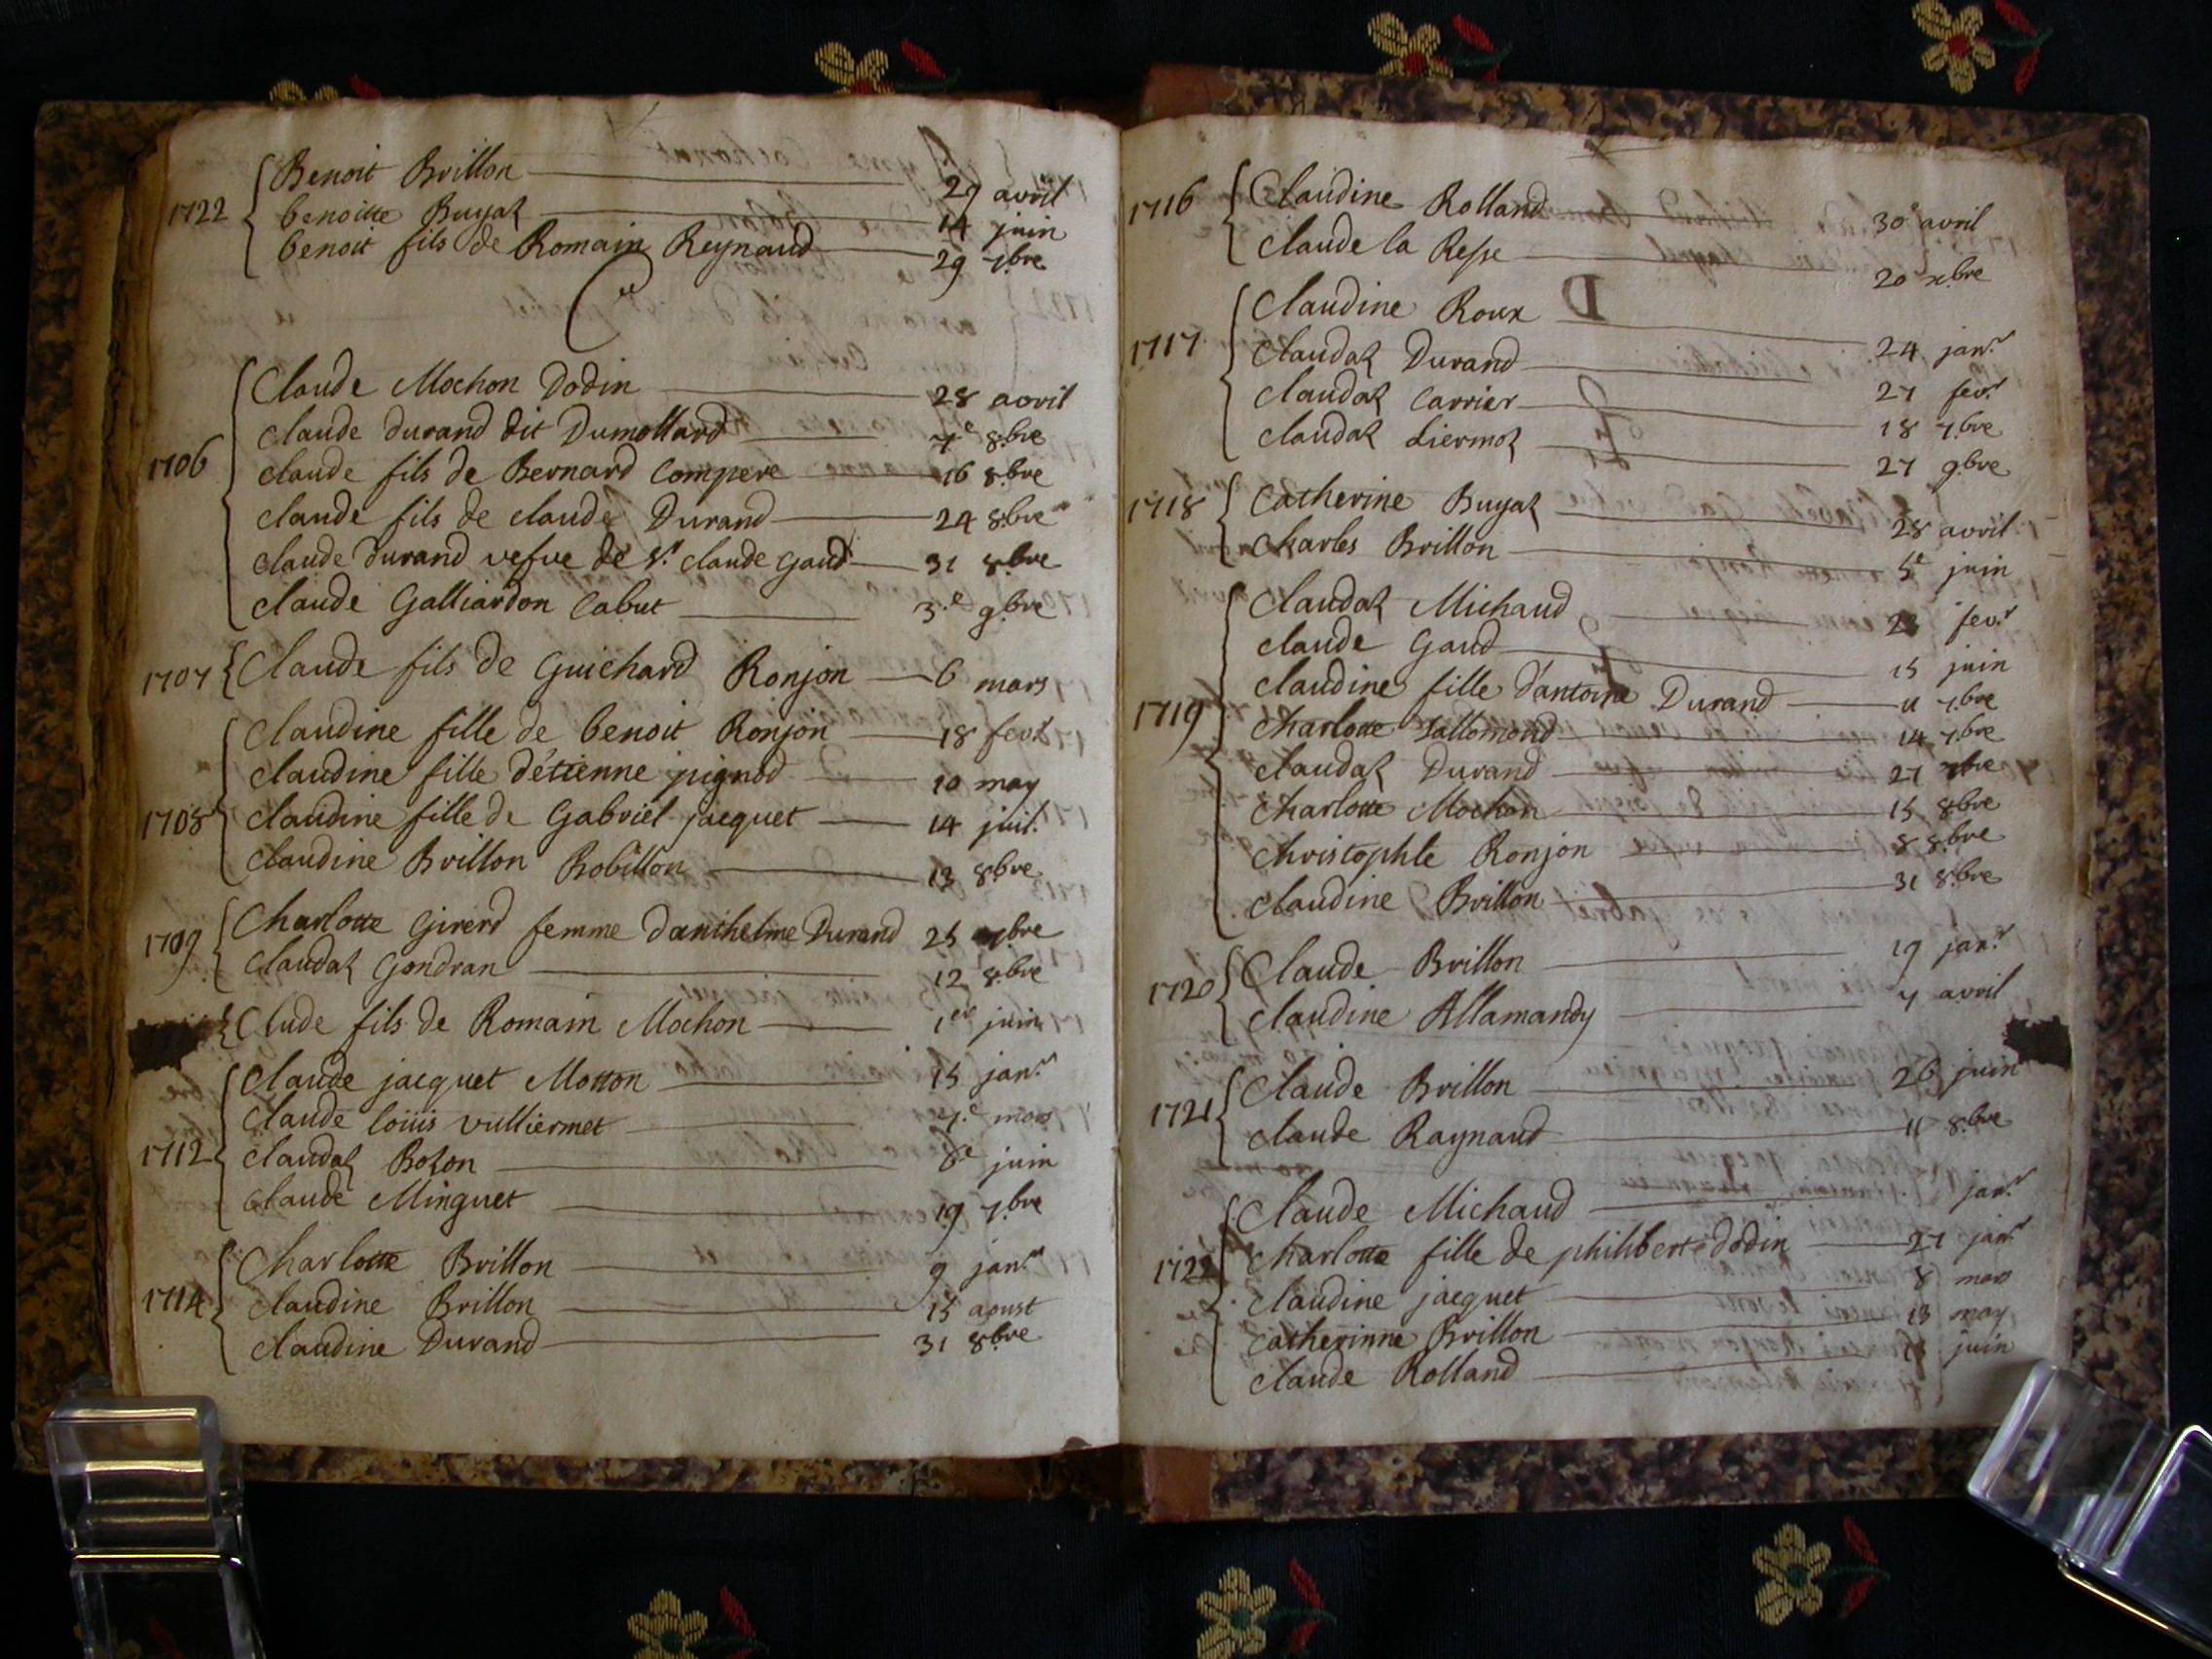 Benoit Brillon 29 avril
1722 benoitte Buyaz 14 juin
benoit fils de Romain Reynaud 29 7bre
C
Claude Mochon Dodin 28 avril
claude durand dit Dumollard 7e 8bre
1706 claude fils de Bernard Compere 16 8bre
claude fils de claude Durand 24 8bre
claude durand vefve de Sr. claude gaud 31 8bre
claude Galliardon Cabut 3.e 9bre
1707 Claude fils de Guichard Ronjon 6 mars
Claudine fille de benoit Ronjon 18 fevr
claudine fille d'étienne pignod 10 may
1708 claudine fille de Gabriel jacquet 14 juil.
claudine Brillon Robillon 13 8bre
Charlotte Girerd femme danthelme Durand 25 7bre
1709 claudaz Gondran 12 8bre
Clude fils de Romain Mochon 1er juin
Claude jacquet Motton 15 janr
claude loüis vulliermet 7.e mars
1712 claudaz Bozon 8e juin
claude Minguet 19 7bre
Charlotte Brillon 9 janr
1714 claudine Brillon 15 aoust
claudine Durand 31 8bre
1716 Claudine Rolland 30e avril
claude la Resse 20 xbre
Claudine Roux 24 janr
1717 claudaz Durand 27 fevr
claudaz Carrier 18 7bre
claudaz Liermoz 27 9bre
1718 Catherine Buyaz 28 avril
charles Brillon 5e juin
Claudaz Michaud fevr
claude Gaud 15 juin
claudine fille d'antoine Durand 11 7bre
1719 charlotte Sallomond 14 7bre
claudaz Durand 27 7bre
charlotte Mochon 15 8bre
christophle Ronjon 8 8bre
claudine Brillon 31 8bre
1720 Claude Brillon 19 janr
claudine Allamandy 7 avril
1721 Claude Brillon 26 juin
claude Raynaud 11 8bre
Claude Michaud janr
1722 charlotte fille de philibert dodin 27 janr
claudine jacquet 8 mars
catherinne Brillon 13 may
claude Rolland juin